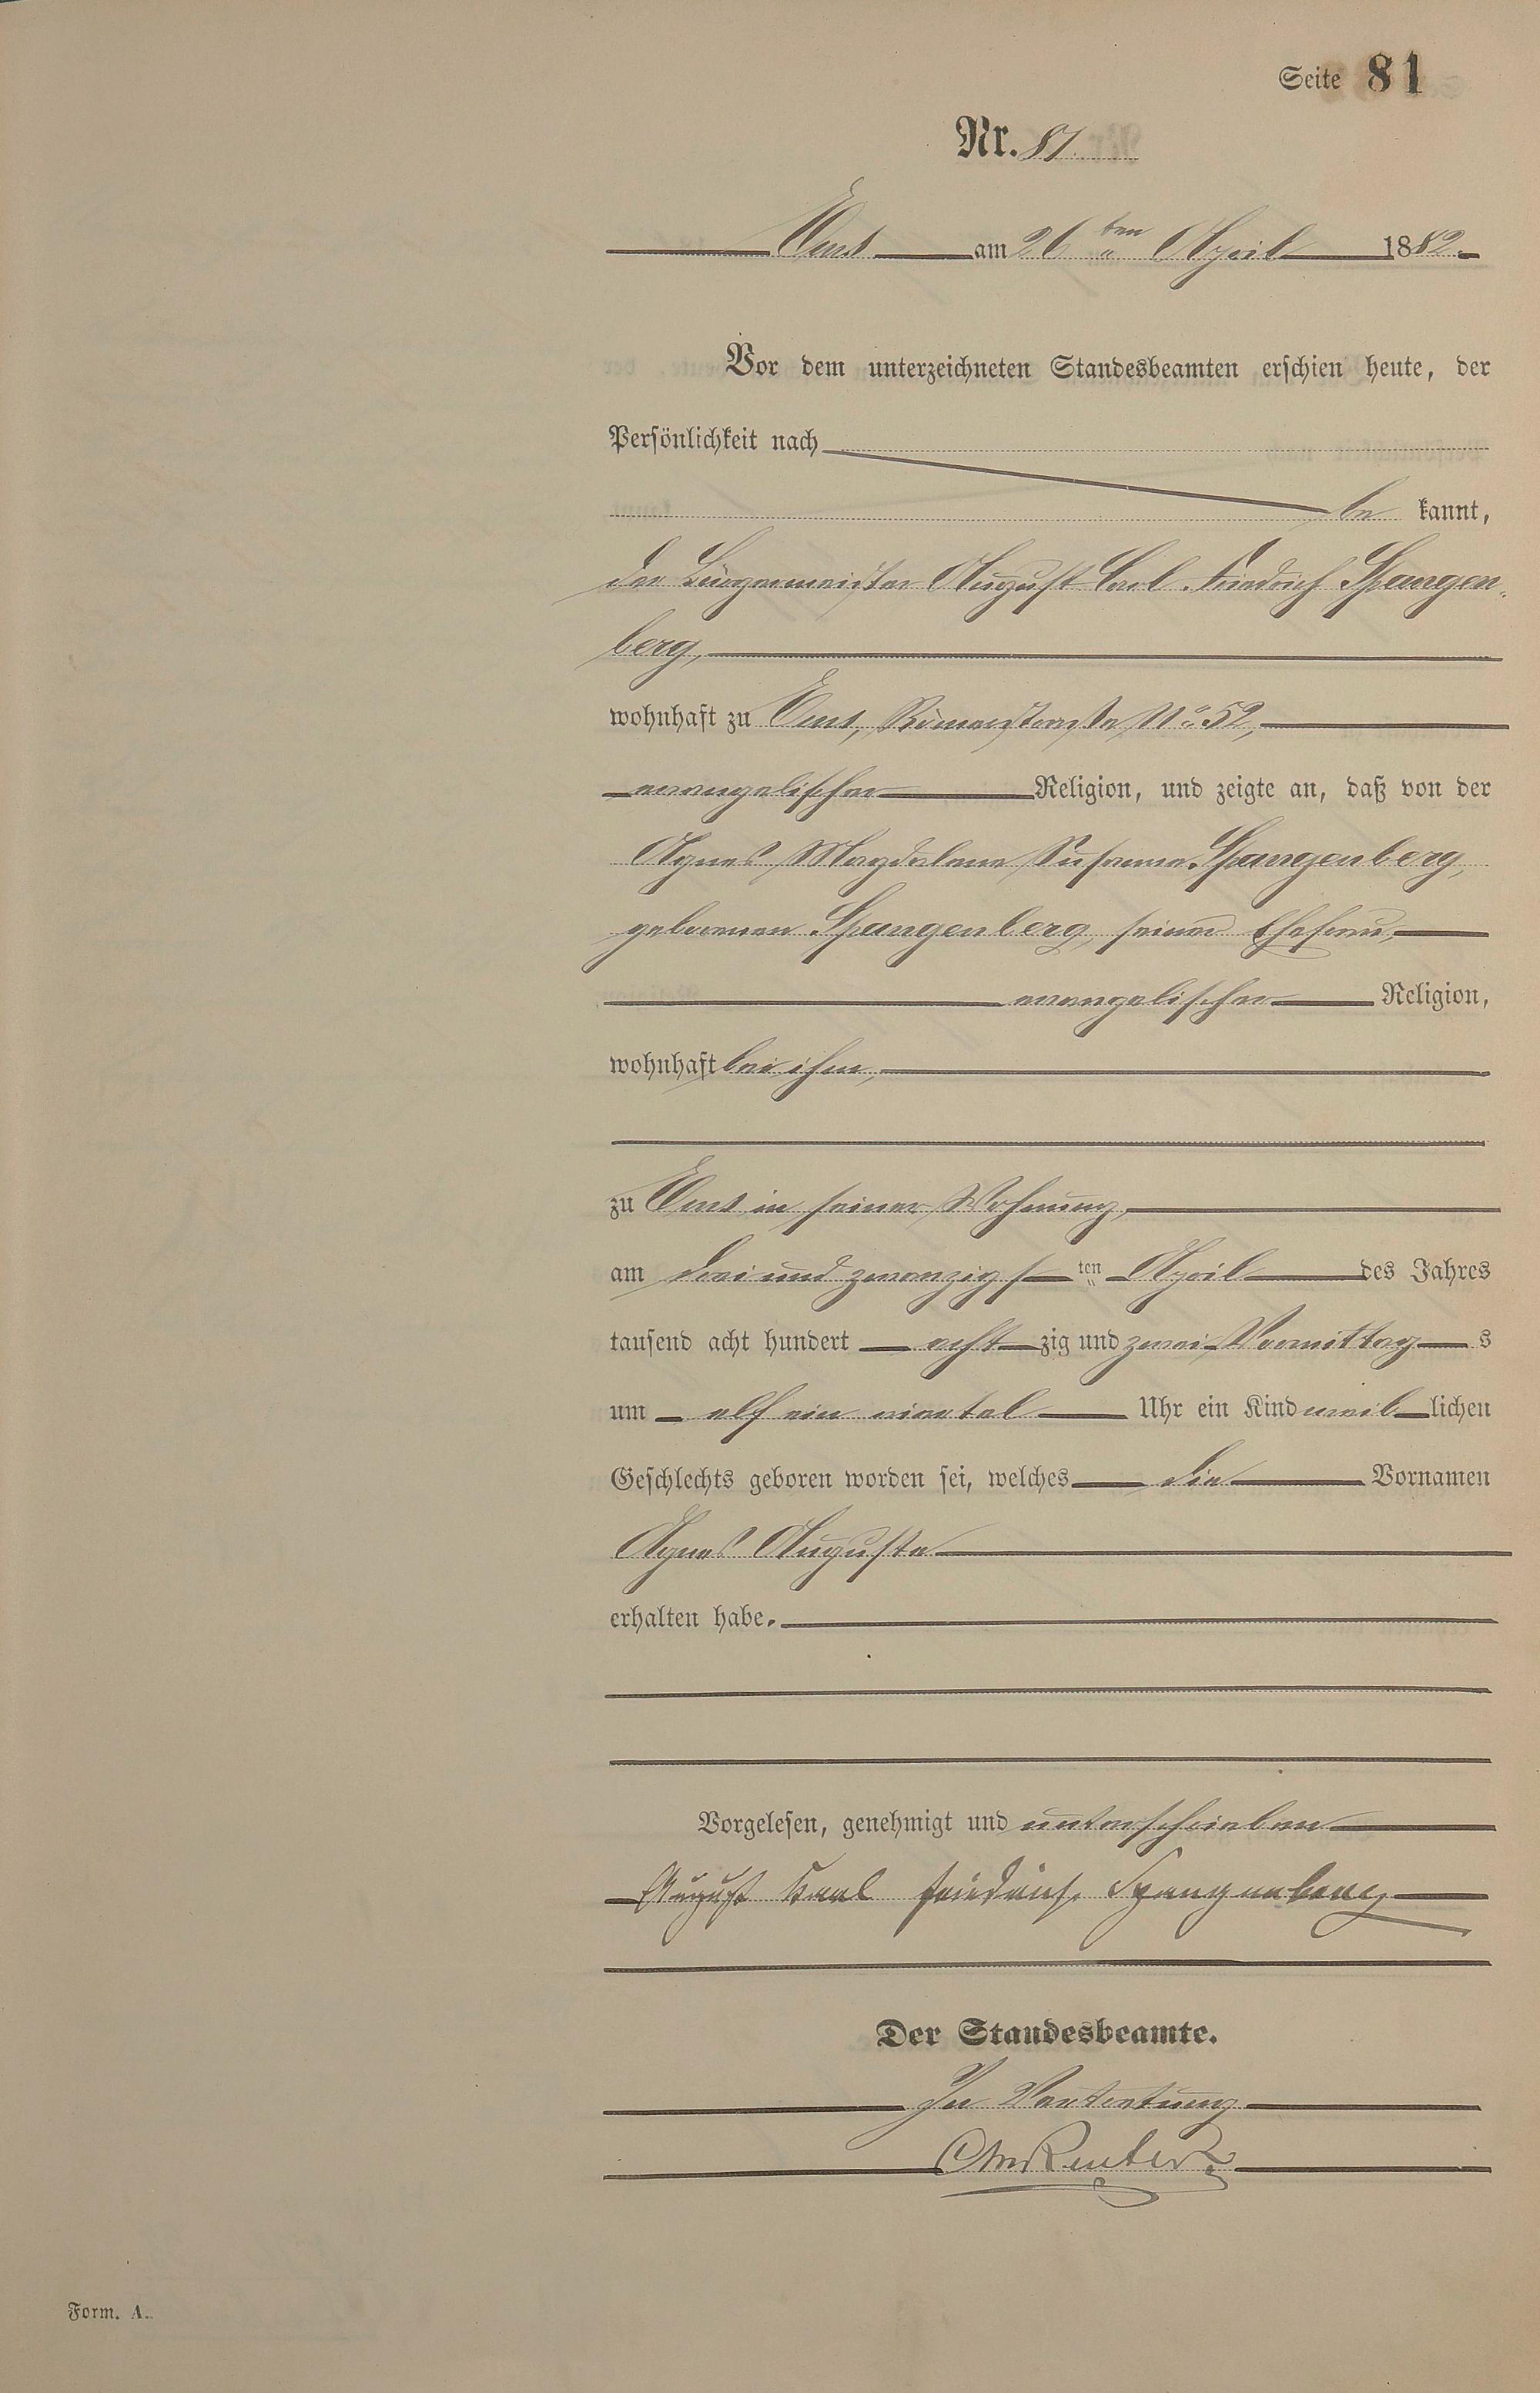 Seite 81
Nr. 81.
Ems am 26ten April 1882.
Vor dem unterzeichneten Standesbeamten erschien heute, der
Persönlichkeit nach
be kannt,
der Bürgermeister August Carl Friedrich Spangen-
berg,
wohnhaft zu Ems, Römerstraße No. 52,
evangelischer Religion, und zeigte an, daß von der
Agnes Magdalena Susanna Spangenberg,
geborenen Spangenberg, seiner Ehefrau,
evangelischer Religion,
wohnhaft bei ihm,
zu Ems in seiner Wohnung,
am drei und zwanzigsten April des Jahres
tausend acht hundert acht zig und zwei Vormittag s
um elf ein viertel Uhr ein Kind weib lichen
Geschlechts geboren worden sei, welches die Vornamen
Agnes Auguste
erhalten habe.
Vorgelesen, genehmigt und unterschrieben
August Karl Friedrich Spangenberg
Der Standesbeamte.
In Vertretung
Reuter
Form. A.